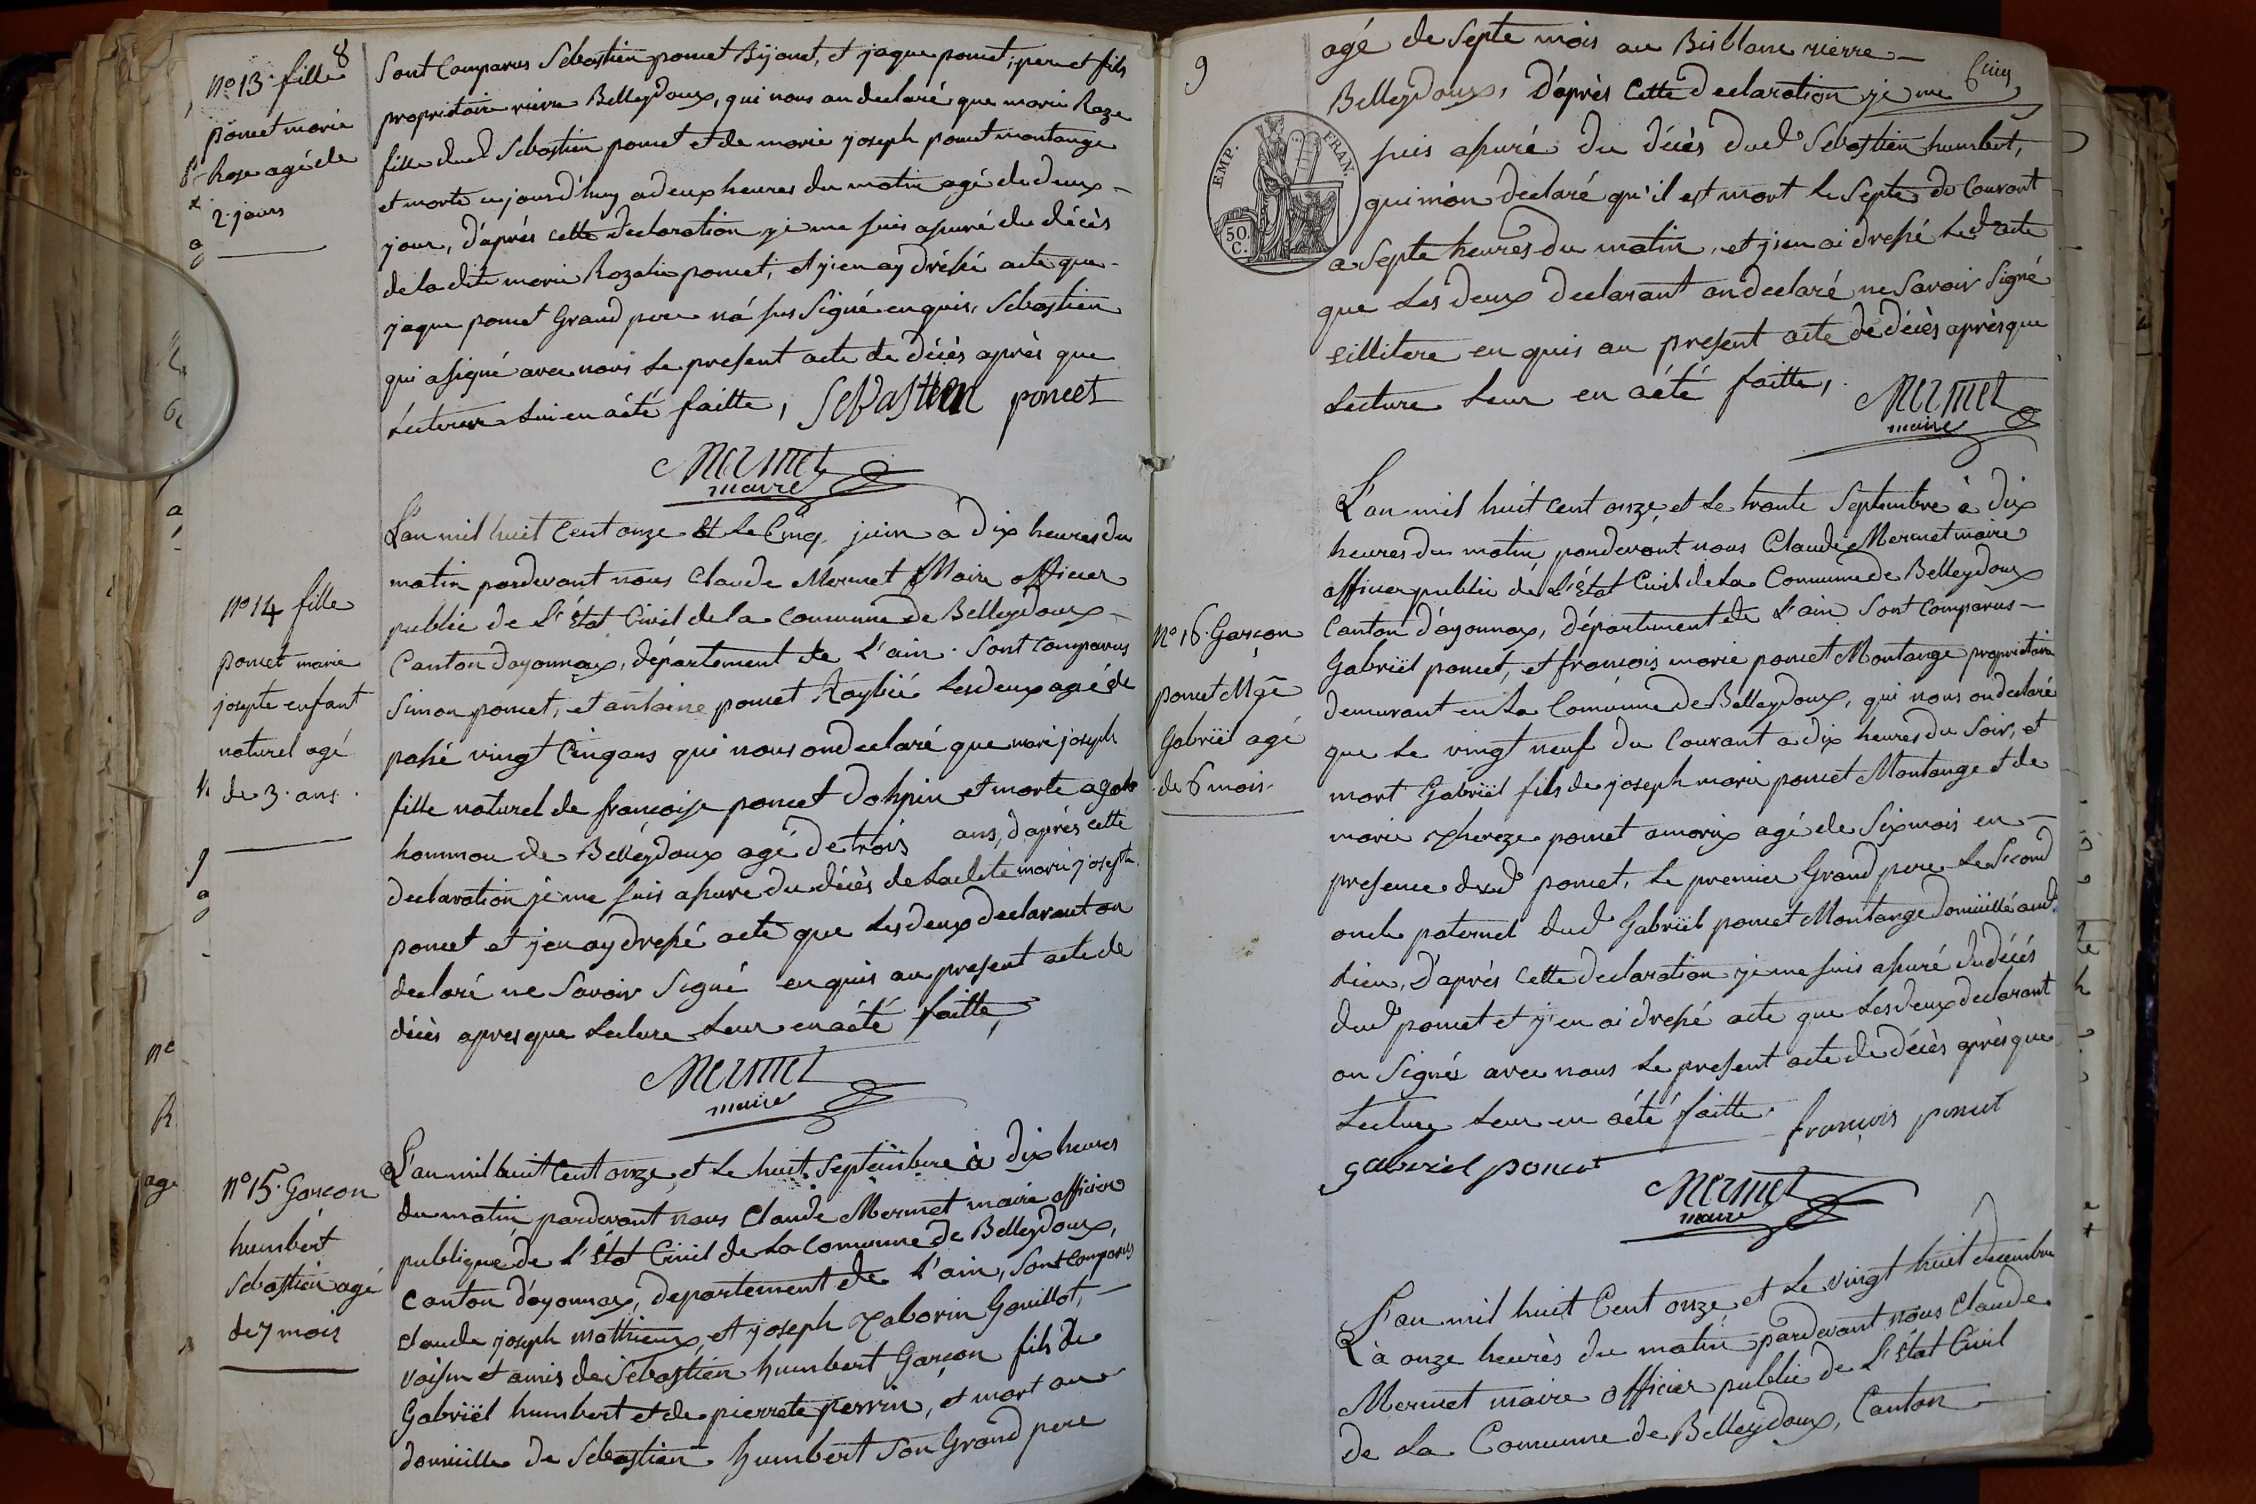 8
no 13. fille
poncet marie
Rose agé de
2. jours
Sont Comparus Sebastien poncet Bijouet, et jaque poncet, pere et fils
propriétaire rierre Belleydoux, qui nous on declaré que marie Roze
fille dud. Sebastien poncet et de marie joseph poncet montange
et morte cejourd'huy a deux heures du matin agé de deux –
jour, d'aprés cette declaration je me suis assuré du décès
de la dite marie Rozalie poncet, et j'en ay dréssé acte que –
jaque poncet Grand pere na pas Signé enquis, Sebastien
qui a signé avec nous le present acte de décès après que
Lecture lui en a été faitte, Sebastien poncet
Mermet
maire
no 14 fille
poncet marie
josepte enfant
naturel agé
de 3. ans.
L'an mil huit Cent onze et Le Cinq juin a dix heures du
matin pardevant nous Claude Mermet Maire officier
public de L'état Civil de la commune de Belleydoux –
Canton doyonnax, département de L'ain. Sont Comparus
Simon poncet, et antoine poncet Les deux agé de
passé vingt Cinq ans qui nous on declaré que marie joseph
fille naturel de francoise poncet dolspin et morte a
hommou de Belleydoux agé de trois ans, d'aprés cette
declaration je me suis assuré du décès de Ladite marie josepte
poncet et j'en ay dressé acte que Les deux declarant on
declaré ne Savoir Signé enquis au present acte de
décès apres que Lecture Leur en a été faitte,
Mermet
maire
no 15. Garçon
humbert
Sebastien agé
de 7 mois
L'an mil huit Cent onze, et Le huit Septembre à dix heures
du matin, pardevant nous Claude Mermet maire officier
publique de L'état Civil de La commune de Belleydoux,
canton d'oyonnax, departement de L'ain, Sont comparus
claude joseph mathieux, et joseph taborin Gouillot, –
voisin et amis de Sebastien humbert Garçon fils de
Gabriël humbert et de pierrete perrin, et mort au
domicille de Sebastien humbert Son Grand pere
9
EMP. FRAN.
50 C.
agé de Septe mois au Bisblanc rierre –
Belleydoux, D'après Cette declaration je me
suis assuré du décès dud. Sebastien humbert,
qui m'on declaré qu'il est mort Le Septe du Courant
a Septe heures du matin, et j'en ai dressé Led. acte
que Les deux declarant on declaré ne Savoir Signé
en quis au present acte de décès après que
Lecture Leur en a été faitte,
Mermet
maire
no 16. Garçon
poncet Mge
Gabriël agé
de 6 mois.
L'an mil huit cent onze, et Le trante Septembre à dix
heures du matin pardevant nous Claude Mermet maire
officier public de L'état Civil de La Commune de Belleydoux
Canton d'oyonnax, département de L'ain Sont comparus –
Gabriël poncet, et francois marie poncet Montange propriétaire
demeurant en La Commune de Belleydoux, qui nous on declaré
que Le vingt neuf du Courant a dix heures du Soir, et
mort Gabriël fils de joseph marie poncet Montange et de
marie thereze poncet amorix agé de Six mois en –
presence desd. poncet, Le premier Grand pere Le Second
oncle paternel dud. Gabriël poncet Montange domicillé aud.
Lieu, D'après Cette declaration je me suis assuré du décès
dud. poncet et j'en ai dressé acte que Les deux declarant
on Signés avec nous Le present acte de décès après que
Lecture Leur en a été faitte. françois poncet
gabriel poncet
Mermet
maire
L'an mil huit Cent onze et Le vingt huit decembre
à onze heures du matin pardevant nous Claude
Mermet maire officier public de L'état Civil
de La Commune de Belleydoux, Canton –